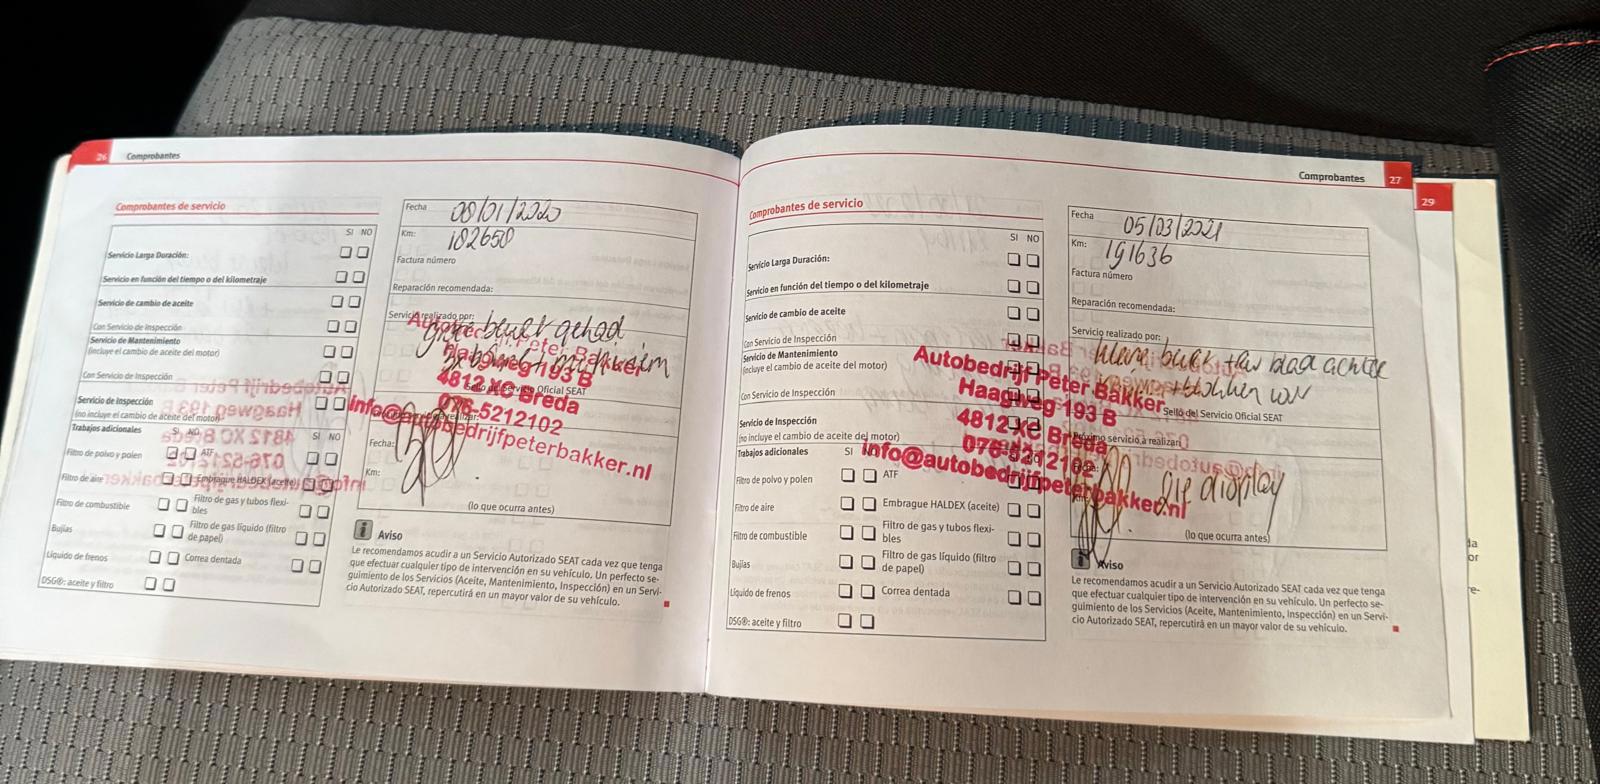 26 Comprobantes
Comprobantes de servicio
SI NO
Servicio Larga Duración:
Servicio en función del tiempo o del kilometraje
Servicio de cambio de aceite
Con Servicio de Inspección
Servicio de Mantenimiento
(incluye el cambio de aceite del motor)
Con Servicio de Inspección
Servicio de Inspección
(no incluye el cambio de aceite del motor)
Trabajos adicionales SI NO SI NO
Filtro de polvo y polen ATF
Filtro de aire Embrague HALDEX (aceite)
Filtro de combustible Filtro de gas y tubos flexi-
bles
Bujías Filtro de gas líquido (filtro
de papel)
Líquido de frenos Correa dentada
DSG®: aceite y filtro
Fecha 08/01/2020
Km: 182658
Factura número
Reparación recomendada:
Servicio realizado por:
beurt gehad
Autobedrijf Peter Bakker
Haagweg 193 B
4812 XC Breda
076-5212102
info@autobedrijfpeterbakker.nl
Sello del Servicio Oficial SEAT
Fecha:
Km:
(lo que ocurra antes)
Aviso
Le recomendamos acudir a un Servicio Autorizado SEAT cada vez que tenga
que efectuar cualquier tipo de intervención en su vehículo. Un perfecto se-
guimiento de los Servicios (Aceite, Mantenimiento, Inspección) en un Servi-
cio Autorizado SEAT, repercutirá en un mayor valor de su vehículo.
Comprobantes 27
Comprobantes de servicio
SI NO
Servicio Larga Duración:
Servicio en función del tiempo o del kilometraje
Servicio de cambio de aceite
Con Servicio de Inspección
Servicio de Mantenimiento
(incluye el cambio de aceite del motor)
Con Servicio de Inspección
Servicio de Inspección
(no incluye el cambio de aceite del motor)
Trabajos adicionales SI NO
Filtro de polvo y polen ATF
Filtro de aire Embrague HALDEX (aceite)
Filtro de combustible Filtro de gas y tubos flexi-
bles
Bujías Filtro de gas líquido (filtro
de papel)
Líquido de frenos Correa dentada
DSG®: aceite y filtro
Fecha 05/03/2021
Km: 191636
Factura número
Reparación recomendada:
Servicio realizado por:
beurt achter
Autobedrijf Peter Bakker
Haagweg 193 B
4812 XC Breda
076-5212102
info@autobedrijfpeterbakker.nl
Sello del Servicio Oficial SEAT
Próximo servicio a realizar:
Fecha:
display
(lo que ocurra antes)
Aviso
Le recomendamos acudir a un Servicio Autorizado SEAT cada vez que tenga
que efectuar cualquier tipo de intervención en su vehículo. Un perfecto se-
guimiento de los Servicios (Aceite, Mantenimiento, Inspección) en un Servi-
cio Autorizado SEAT, repercutirá en un mayor valor de su vehículo.
29